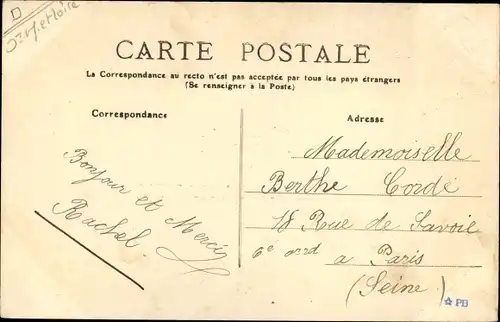 D
CARTE POSTALE
La Correspondance au recto n'est pas acceptée par tous les pays étrangers
(Se renseigner à la Poste)
Correspondance
Bonjour et Merci
Rachel
Adresse
Mademoiselle
Berthe Cordé
18 Rue de Savoie
6e arrd a Paris
(Seine)
PB